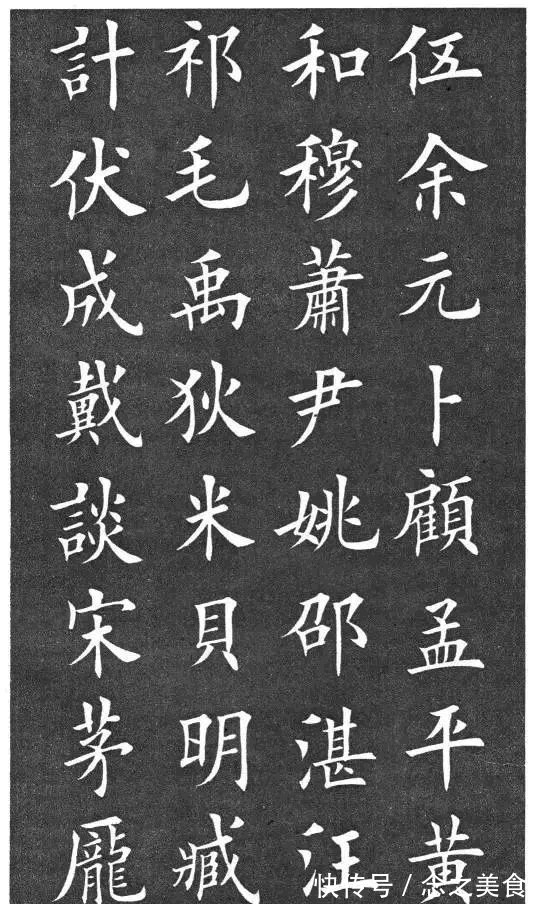 伍余元卜顧孟平黃
和穆蕭尹姚邵湛汪
祁毛禹狄米貝明臧
計伏成戴談宋茅龐
快传号/念之美食